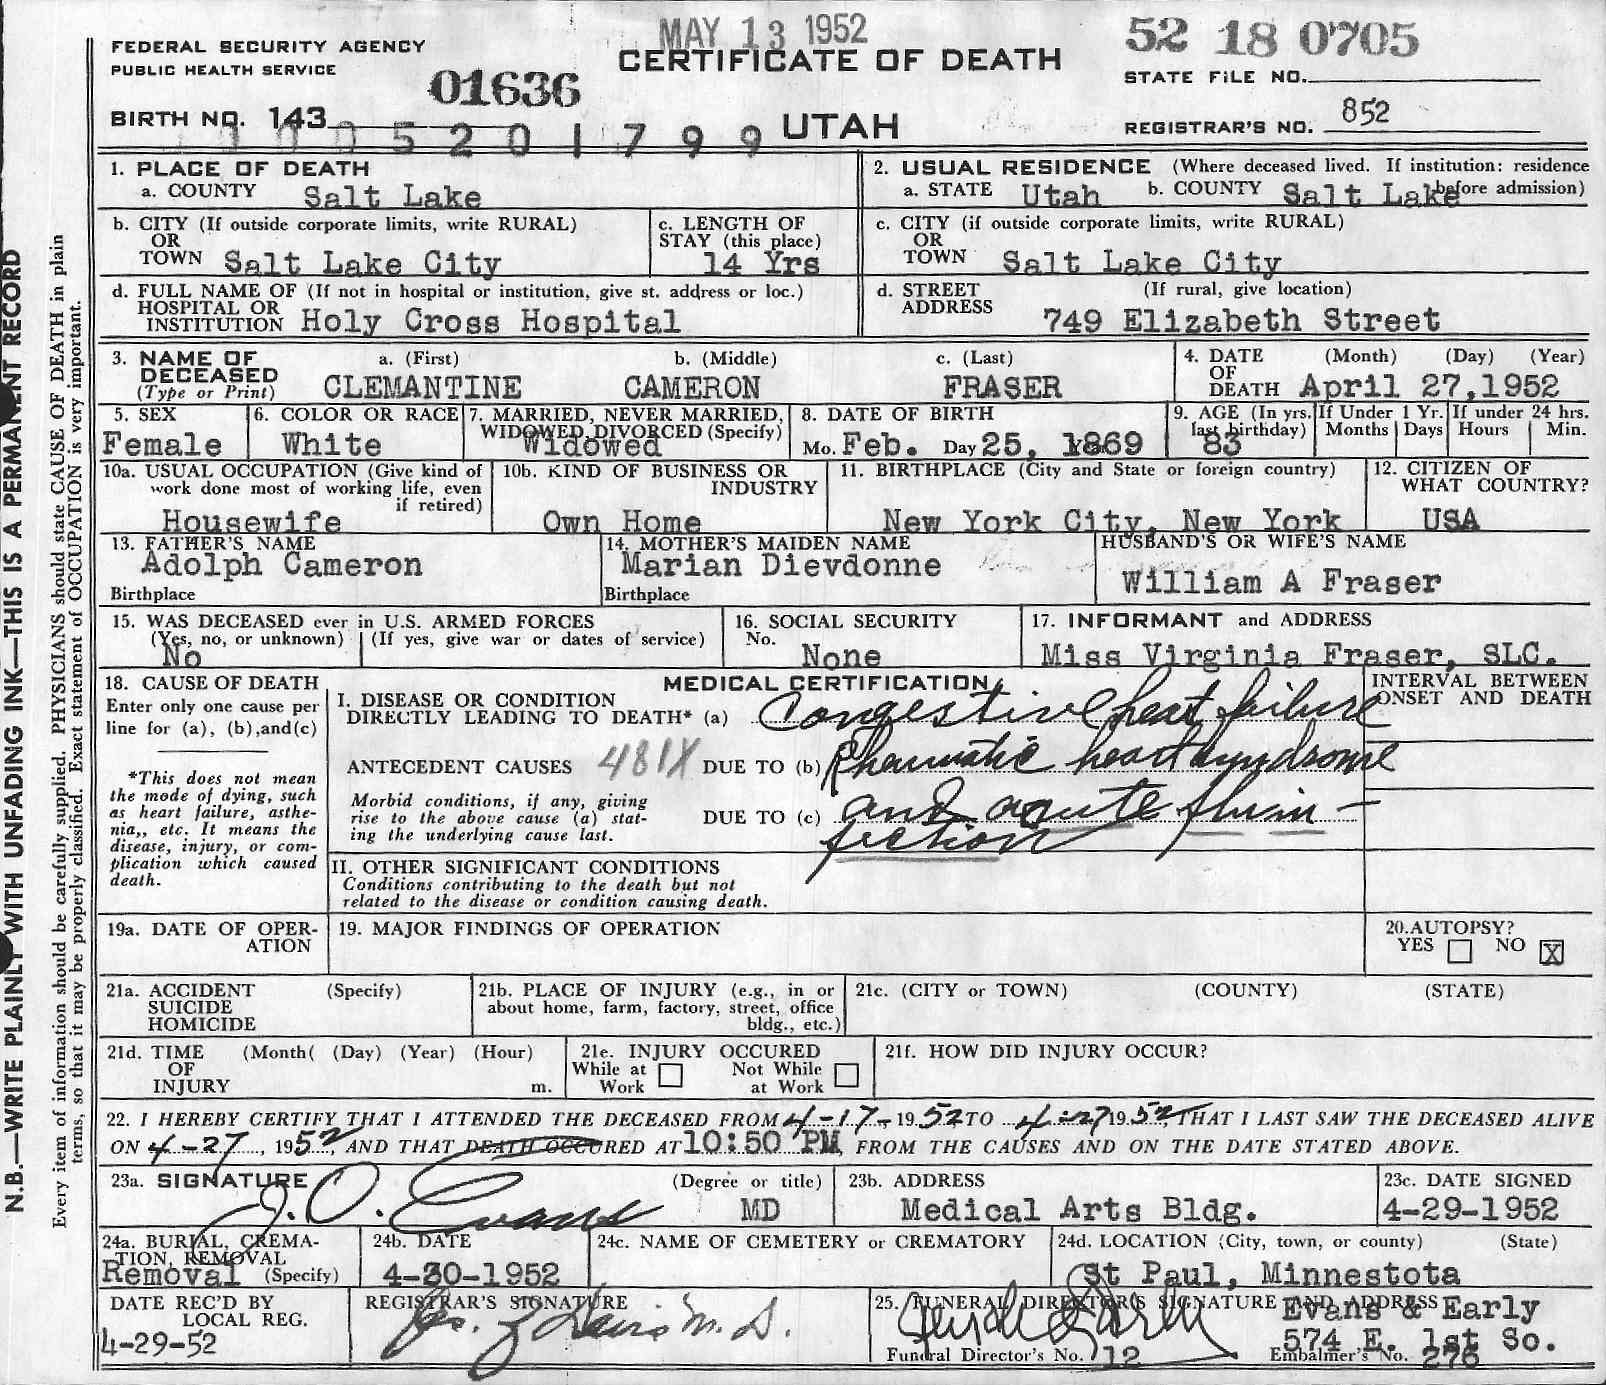 MAY 13 1952
52 18 0705
FEDERAL SECURITY AGENCY
PUBLIC HEALTH SERVICE
CERTIFICATE OF DEATH
STATE FILE NO.
01636
BIRTH NO. 143
UTAH
REGISTRAR'S NO. 852
5 2 0 1 7 9 9
1. PLACE OF DEATH
a. COUNTY Salt Lake
2. USUAL RESIDENCE (Where deceased lived. If institution: residence before admission)
a. STATE Utah b. COUNTY Salt Lake
b. CITY (If outside corporate limits, write RURAL)
OR
TOWN Salt Lake City
c. LENGTH OF
STAY (this place)
14 Yrs
c. CITY (if outside corporate limits, write RURAL)
OR
TOWN Salt Lake City
d. FULL NAME OF (If not in hospital or institution, give st. address or loc.)
HOSPITAL OR
INSTITUTION Holy Cross Hospital
d. STREET (If rural, give location)
ADDRESS
749 Elizabeth Street
3. NAME OF
DECEASED
(Type or Print)
a. (First) b. (Middle) c. (Last)
CLEMANTINE CAMERON FRASER
4. DATE (Month) (Day) (Year)
OF
DEATH April 27, 1952
5. SEX
Female
6. COLOR OR RACE
White
7. MARRIED, NEVER MARRIED,
WIDOWED, DIVORCED (Specify)
Widowed
8. DATE OF BIRTH
Mo. Feb. Day 25, 1869
9. AGE (In yrs.
last birthday)
83
If Under 1 Yr.
Months Days
If under 24 hrs.
Hours Min.
10a. USUAL OCCUPATION (Give kind of
work done most of working life, even
if retired)
Housewife
10b. KIND OF BUSINESS OR
INDUSTRY
Own Home
11. BIRTHPLACE (City and State or foreign country)
New York City, New York
12. CITIZEN OF
WHAT COUNTRY?
USA
13. FATHER'S NAME
Adolph Cameron
Birthplace
14. MOTHER'S MAIDEN NAME
Marian Dievdonne
Birthplace
HUSBAND'S OR WIFE'S NAME
William A Fraser
15. WAS DECEASED ever in U.S. ARMED FORCES
(Yes, no, or unknown) (If yes, give war or dates of service)
No
16. SOCIAL SECURITY
No.
None
17. INFORMANT and ADDRESS
Miss Virginia Fraser, SLC.
18. CAUSE OF DEATH
Enter only one cause per
line for (a), (b), and (c)
*This does not mean
the mode of dying, such
as heart failure, asthe-
nia,, etc. It means the
disease, injury, or com-
plication which caused
death.
MEDICAL CERTIFICATION
INTERVAL BETWEEN
ONSET AND DEATH
I. DISEASE OR CONDITION
DIRECTLY LEADING TO DEATH* (a) Congestive heart failure
ANTECEDENT CAUSES 481X DUE TO (b) Rheumatic heart syndrome
Morbid conditions, if any, giving
rise to the above cause (a) stat-
ing the underlying cause last.
DUE TO (c) and acute
II. OTHER SIGNIFICANT CONDITIONS
Conditions contributing to the death but not
related to the disease or condition causing death.
19a. DATE OF OPER-
ATION
19. MAJOR FINDINGS OF OPERATION
20. AUTOPSY?
YES NO X
21a. ACCIDENT (Specify)
SUICIDE
HOMICIDE
21b. PLACE OF INJURY (e.g., in or
about home, farm, factory, street, office
bldg., etc.)
21c. (CITY or TOWN) (COUNTY) (STATE)
21d. TIME (Month( (Day) (Year) (Hour)
OF
INJURY m.
21e. INJURY OCCURED
While at Work Not While at Work
21f. HOW DID INJURY OCCUR?
22. I HEREBY CERTIFY THAT I ATTENDED THE DECEASED FROM 4-17-1952 TO 4-27 1952, THAT I LAST SAW THE DECEASED ALIVE
ON 4-27, 1952, AND THAT DEATH OCCURED AT 10:50 PM, FROM THE CAUSES AND ON THE DATE STATED ABOVE.
23a. SIGNATURE (Degree or title)
J. O. Evans MD
23b. ADDRESS
Medical Arts Bldg.
23c. DATE SIGNED
4-29-1952
24a. BURIAL, CREMA-
TION, REMOVAL
Removal (Specify)
24b. DATE
4-30-1952
24c. NAME OF CEMETERY or CREMATORY
24d. LOCATION (City, town, or county) (State)
St Paul, Minnestota
DATE REC'D BY
LOCAL REG.
4-29-52
REGISTRAR'S SIGNATURE
25. FUNERAL DIRECTOR'S SIGNATURE AND ADDRESS
Evans & Early
574 E. 1st So.
Funeral Director's No. 12 Embalmer's No. 276
N.B.—WRITE PLAINLY WITH UNFADING INK—THIS IS A PERMANENT RECORD
Every item of information should be carefully supplied. PHYSICIANS should state CAUSE OF DEATH in plain
terms, so that it may be properly classified. Exact statement of OCCUPATION is very important.